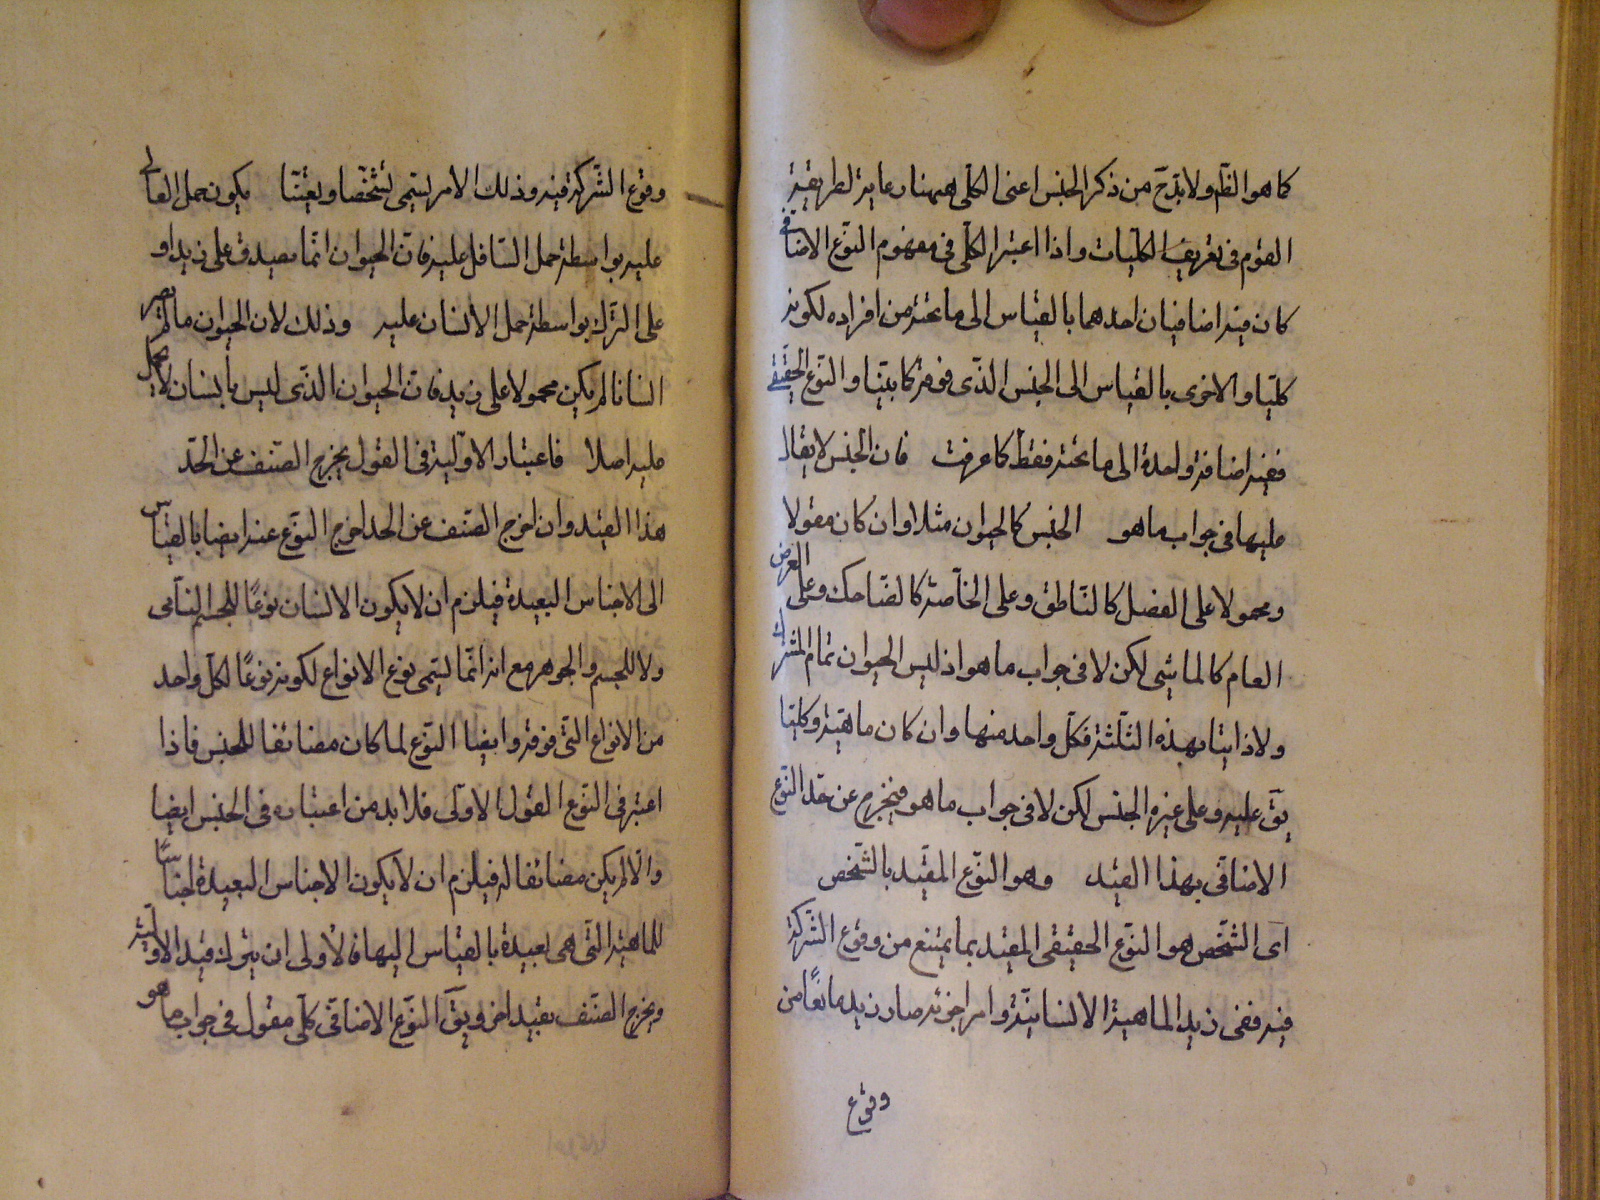 كما هو الظّ ولا بدّ ح من ذكر الجنس اعنى الكلى ههنا رعاية لطريقة
القوم فى تعريف الكلّيات واذا اعتبر الكلّى فى مفهوم النوّع الاضافى
كان فيه اضافيان احدهما بالقياس الى ما تحته من افراده لكونه
كلّيا والاخرى بالقياس الى الجنس الذّى فوقه كما بيّنا والنوّع الحقيقى
ففيه اضافة واحدة الى ما تحته فقط كما عرفت فان الجنس لا يقال
عليها فى جواب ما هو الجنس كالحيوان مثلا وان كان مقولا
ومحمولا على الفصل كالنّاطق وعلى الخاصّة كالضّاحك وعلى العرض
العام كالماشى لكن لا فى جواب ما هو اذ ليس الحيوان تمام المشترك
ولا ذاتيّا بهذه الثّلثة فكلّ واحد منها وان كان ماهيّة وكليّا
يقّ عليه وعلى غيره الجنس لكن لا فى جواب ما هو فيخرج عن حد النوّع
الاضافّى بهذا القيد وهو النوّع المقيّد بالتشّخص
اى الشّخص هو النوّع الحقيقى المقيد بما يمتنع من وقوع الشّركة
فيه ففى زيد الماهية الانسانيّة وامر اخر به صار زيد مانعًا من
وقوع
وقوع الشّركة فيه وذلك الامر يسّمى تشخّصا وتعيّنا يكون حمل العالى
عليه بواسطة حمل السّافل عليه فانّ الحيوان انّما يصدق على زيد او
على الترّك بواسطة حمل الانسان عليه وذلك لان الحيوان ما لم يصر
انسانا لم يكن محمولا على زيد فانّ الحيوان الذّى ليس بانسان لا يحمل
عليه اصلا فاعتبار الاوّلية فى القول يخرج الصّنف عن الحدّ
هذا القيد وان اخرج الصّنف عن الحد اخرج النوّع عنه ايضا بالقياس
الى الاجناس البعيدة فيلزم ان لا يكون الانسان نوعًا للجسم النّامى
ولا للجسم والجوهر مع انه انّما يسّمى نوع الانواع لكونه نوعًا لكلّ واحد
من الانواع التّى فوقه وايضا النوّع لما كان مضائفا للجنس فاذا
اعتبر فى النوّع القول الاوّلى فلا بد من اعتباره فى الجنس ايضا
والّا لم يكن مضائفا له فيلزم ان لا يكون الاجناس البعيدة اجناسًا
للماهية التّى هى بعيدة بالقياس اليها فالأولى ان يترك قيد الاوّلية
ويخرج الصّنف بقيد اخر ويقّ النوّع الاضافّى كلّى مقول فى جواب ما هو